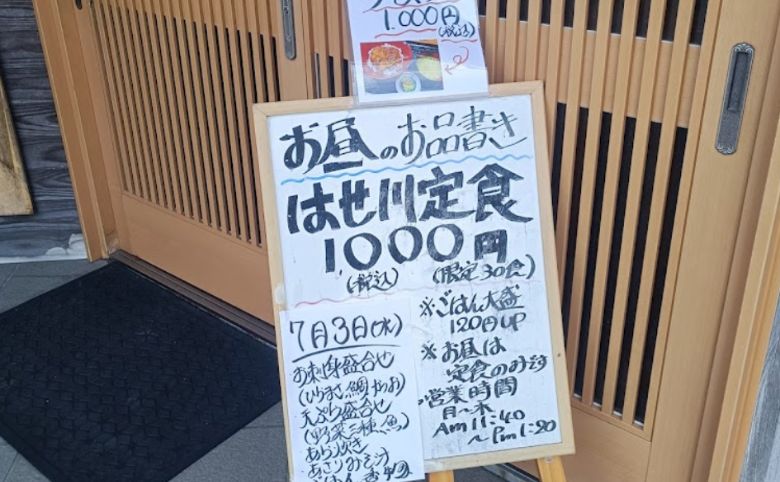 1.000円
(税込)
お昼のお品書き
はせ川定食
1000円
(税込) (限定30食)
7月3日(水)
お刺身盛合せ
(ひらまさ、鯛、かつお)
天ぷら盛合せ
(野菜三種、魚)
あら炊き
あさりみそ汁
ごはん
※ごはん大盛
120円UP
※お昼は
定食のみです
営業時間
月〜木
Am11:40
〜Pm1:20